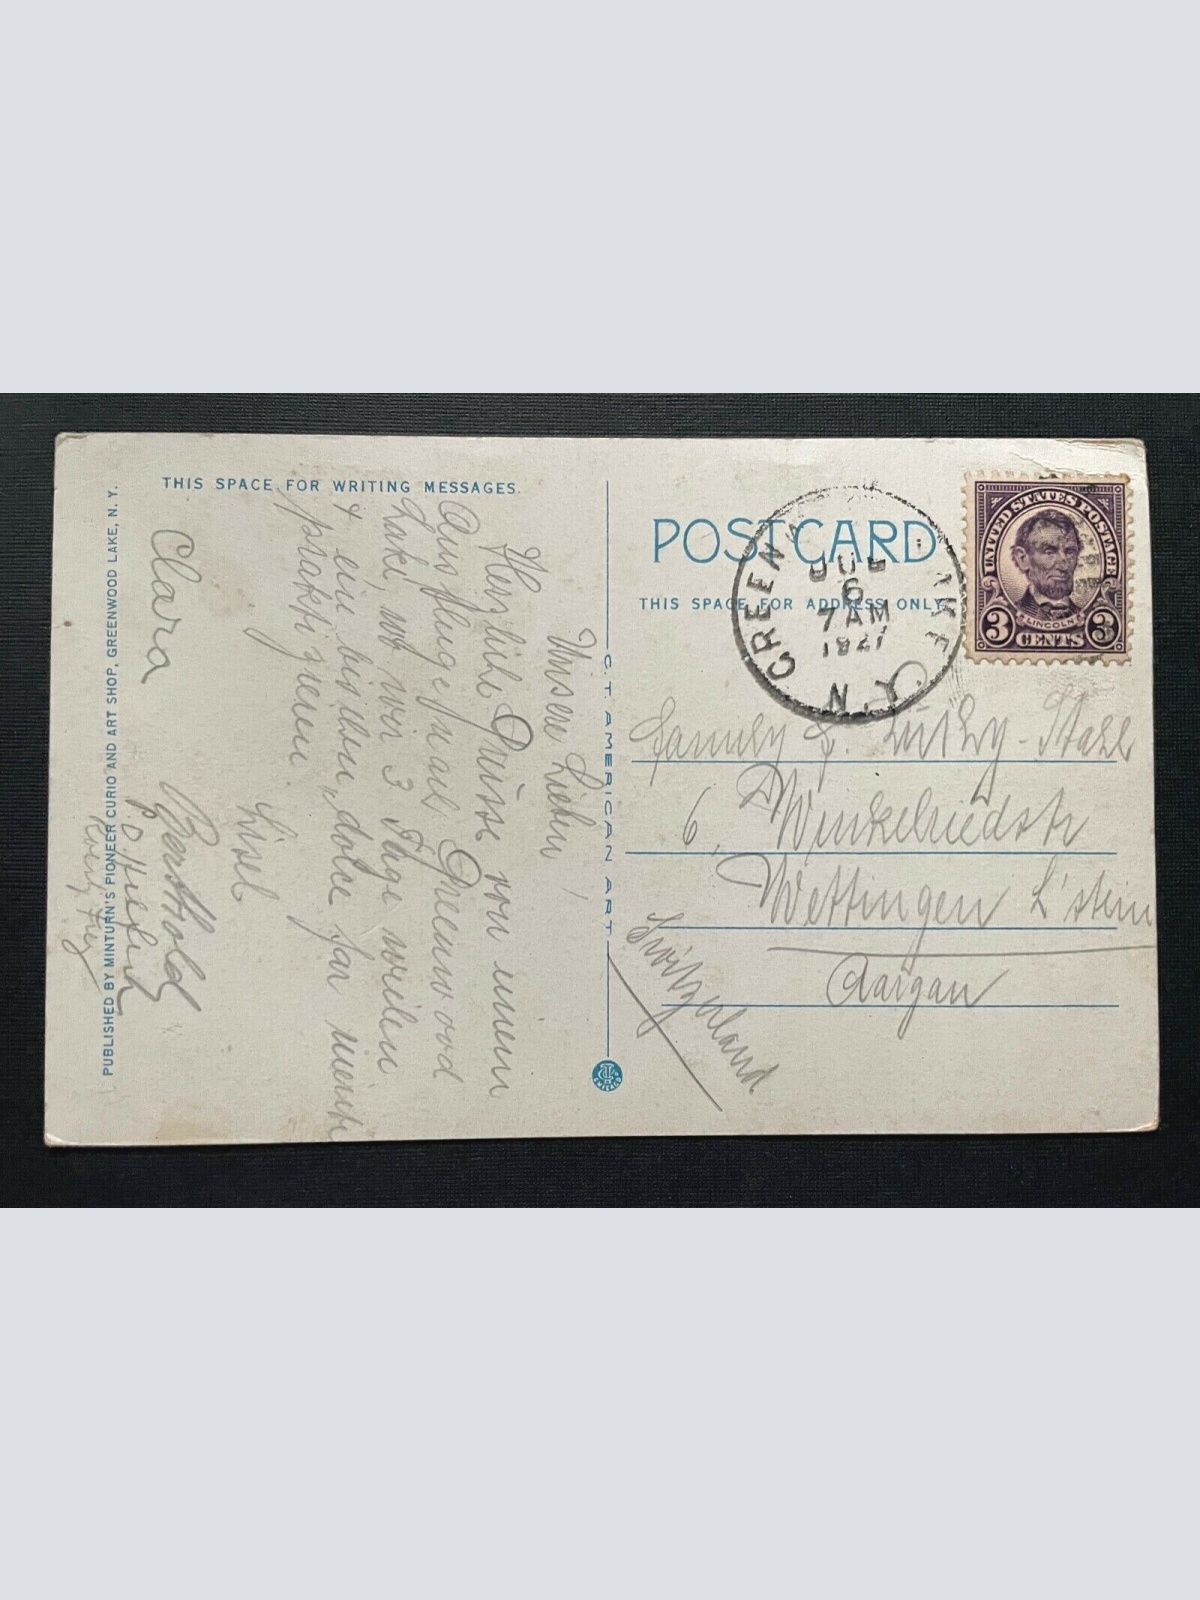 THIS SPACE FOR WRITING MESSAGES.
Unsere Lieben!
Herzliche Grüsse von einem
Ausfluge nach Greenwood
Lake, wo wir 3 Tage weilen
& ein bischen „dolce far niente
praktizieren.
Lisel
Berthold
Clara
PUBLISHED BY MINTURN'S PIONEER CURIO AND ART SHOP, GREENWOOD LAKE, N. Y.
C.T. AMERICAN ART
CHICAGO
POST CARD
THIS SPACE FOR ADDRESS ONLY.
GREENW LAKE N.Y.
JUL
6
7 AM
1927
UNITED STATES POSTAGE
LINCOLN
3 CENTS 3
Family F. Lüthy-Stahl
6, Winkelriedstr
Wettingen L'stein
Aargau
Switzerland